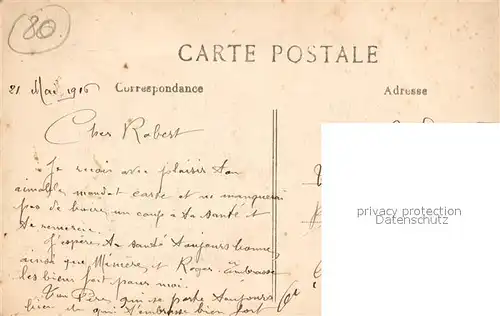 80
CARTE POSTALE
21 Mai 1916 Correspondance Adresse
Cher Robert
Je reçois avec plaisir ton
aimable mandat carte et ne manquerai
pas de boire un coup à ta santé et
te remercie.
J'espère ta santé toujours bonne,
ainsi que Minère et Roger. Embrasse
les bien fort pour moi.
Ton Père, qui se porte toujours
bien et qui t'embrasse bien fort
privacy protection
Datenschutz